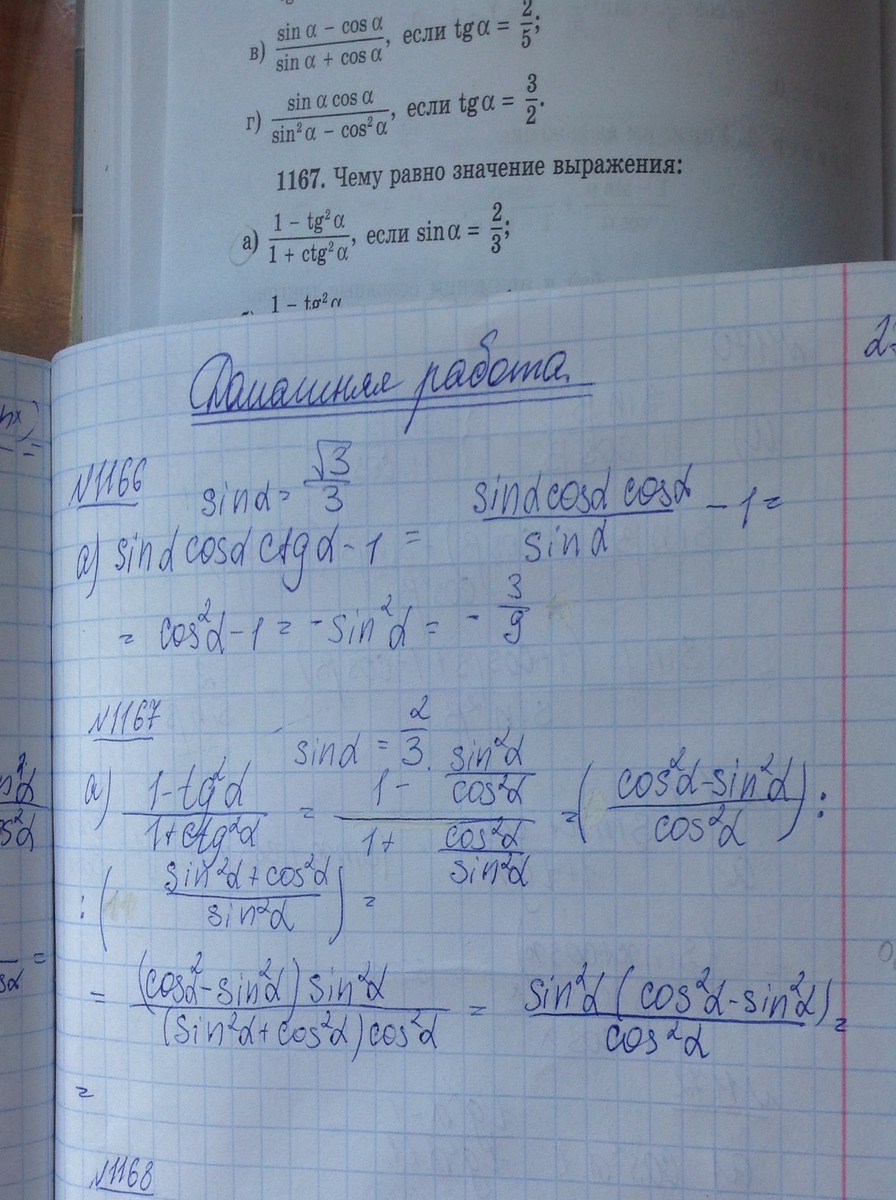 в) (sin α − cos α)/(sin α + cos α), если tg α = 2/5;
г) (sin α cos α)/(sin² α − cos² α), если tg α = 3/2.
1167. Чему равно значение выражения:
а) (1 − tg² α)/(1 + ctg² α), если sin α = 2/3;
1 − tg² α
Домашняя работа.
№1166 sin α = √3/3
а) sin α cos α ctg α − 1 = (sin α cos α cos α)/(sin α) − 1 =
= cos² α − 1 = − sin² α = − 3/9
№1167 sin α = 2/3.
а) (1 − tg² α)/(1 + ctg² α) = (1 − sin² α/cos² α)/(1 + cos² α/sin² α) = ((cos² α − sin² α)/(cos² α)) :
: ((sin² α + cos² α)/(sin² α)) =
= ((cos² α − sin² α) sin² α)/((sin² α + cos² α) cos² α) = (sin² α (cos² α − sin² α))/(cos² α) =
=
№1168